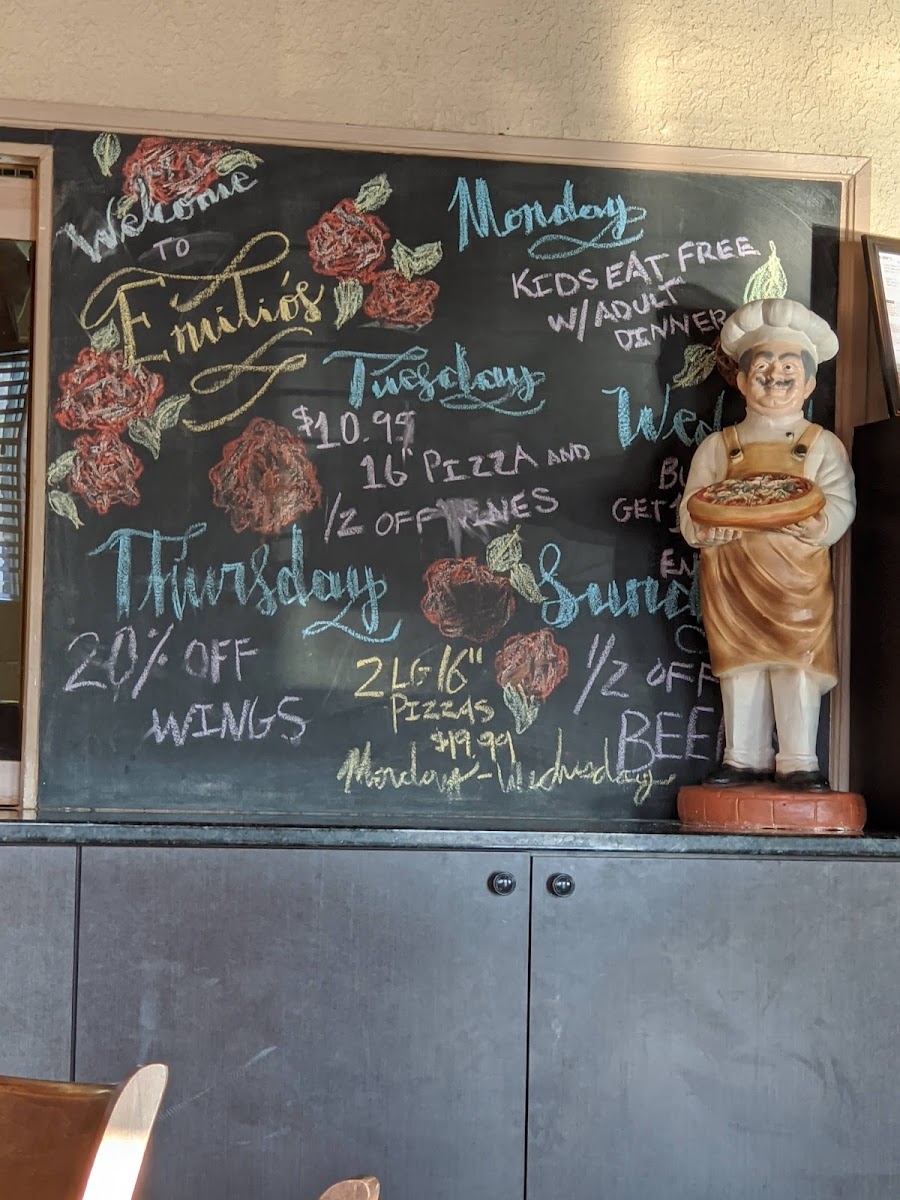 Welcome
TO
Emilió's
Monday
KIDS EAT FREE
W/ADULT
DINNER
Tuesday
$10.95
16" PIZZA AND
1/2 OFF WINES
Wed
BU
GET 1
EN
Thursday
20% OFF
WINGS
2 LG 16"
PIZZAS
$19.99
Monday-Wednesday
Sund
1/2 OFF
BEE